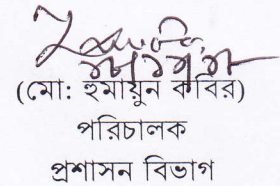 (মো: হুমায়ুন কবির)
পরিচালক
প্রশাসন বিভাগ